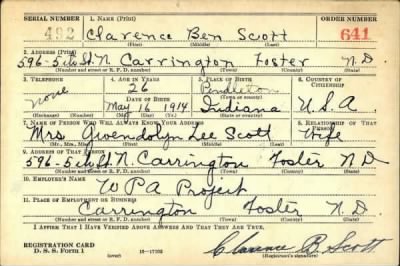 SERIAL NUMBER 1. NAME (Print) ORDER NUMBER
492 Clarence Ben Scott 641
(First) (Middle) (Last)
2. ADDRESS (Print)
596-5th St. N. Carrington Foster N.D
(Number and street or R. F. D. number) (Town) (County) (State)
3. TELEPHONE 4. AGE IN YEARS 5. PLACE OF BIRTH 6. COUNTRY OF CITIZENSHIP
None 26 Pendleton
DATE OF BIRTH (Town or county)
May 16 1914 Indiana U.S.A.
(Exchange) (Number) (Mo.) (Day) (Yr.) (State or country)
7. NAME OF PERSON WHO WILL ALWAYS KNOW YOUR ADDRESS 8. RELATIONSHIP OF THAT PERSON
Mrs. Gwendolyn Lee Scott Wife
(Mr., Mrs., Miss) (First) (Middle) (Last)
9. ADDRESS OF THAT PERSON
596-5th St N. Carrington Foster N D
(Number and street or R. F. D. number) (Town) (County) (State)
10. EMPLOYER'S NAME
WPA Project
11. PLACE OF EMPLOYMENT OR BUSINESS
Carrington Foster N.D
(Number and street or R. F. D. number) (Town) (County) (State)
I AFFIRM THAT I HAVE VERIFIED ABOVE ANSWERS AND THAT THEY ARE TRUE.
REGISTRATION CARD
D. S. S. Form 1 (over) Clarence B. Scott
(Registrant's signature)